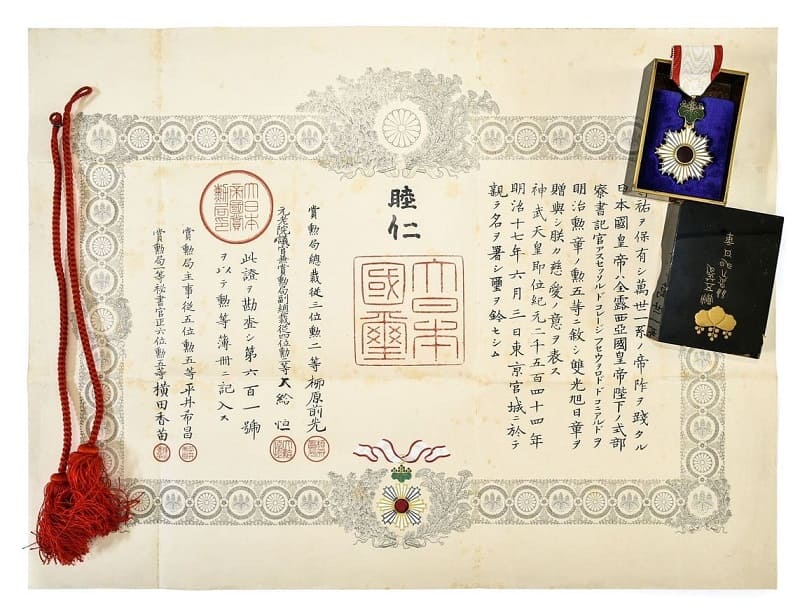 祐ヲ保有シ萬世一系ノ帝祚ヲ踐タル
日本國皇帝ハ全露西亞國皇帝陛下ノ式部
寮書記官アスセッソルドコレージフセウヲロドドコニアルドヲ
明治勲章ノ勲五等ニ敍シ雙光旭日章ヲ
贈與シ朕カ慈愛ノ意ヲ表ス
神武天皇即位紀元二千五百四十四年
明治十七年六月三日東京宮城ニ於テ
親ラ名ヲ署シ璽ヲ鈐セシム
睦仁
大日本國璽
賞勲局總裁從三位勲二等柳原前光
元老院議官兼賞勲局副總裁從四位勲三等大給恒
大日本帝國賞勲局印
此證ヲ勘査シ第六百一號
ヲ以テ勲等簿册ニ記入ス
賞勲局主事從五位勲五等平井希昌
賞勲局一等秘書官正六位勲五等横田香苗